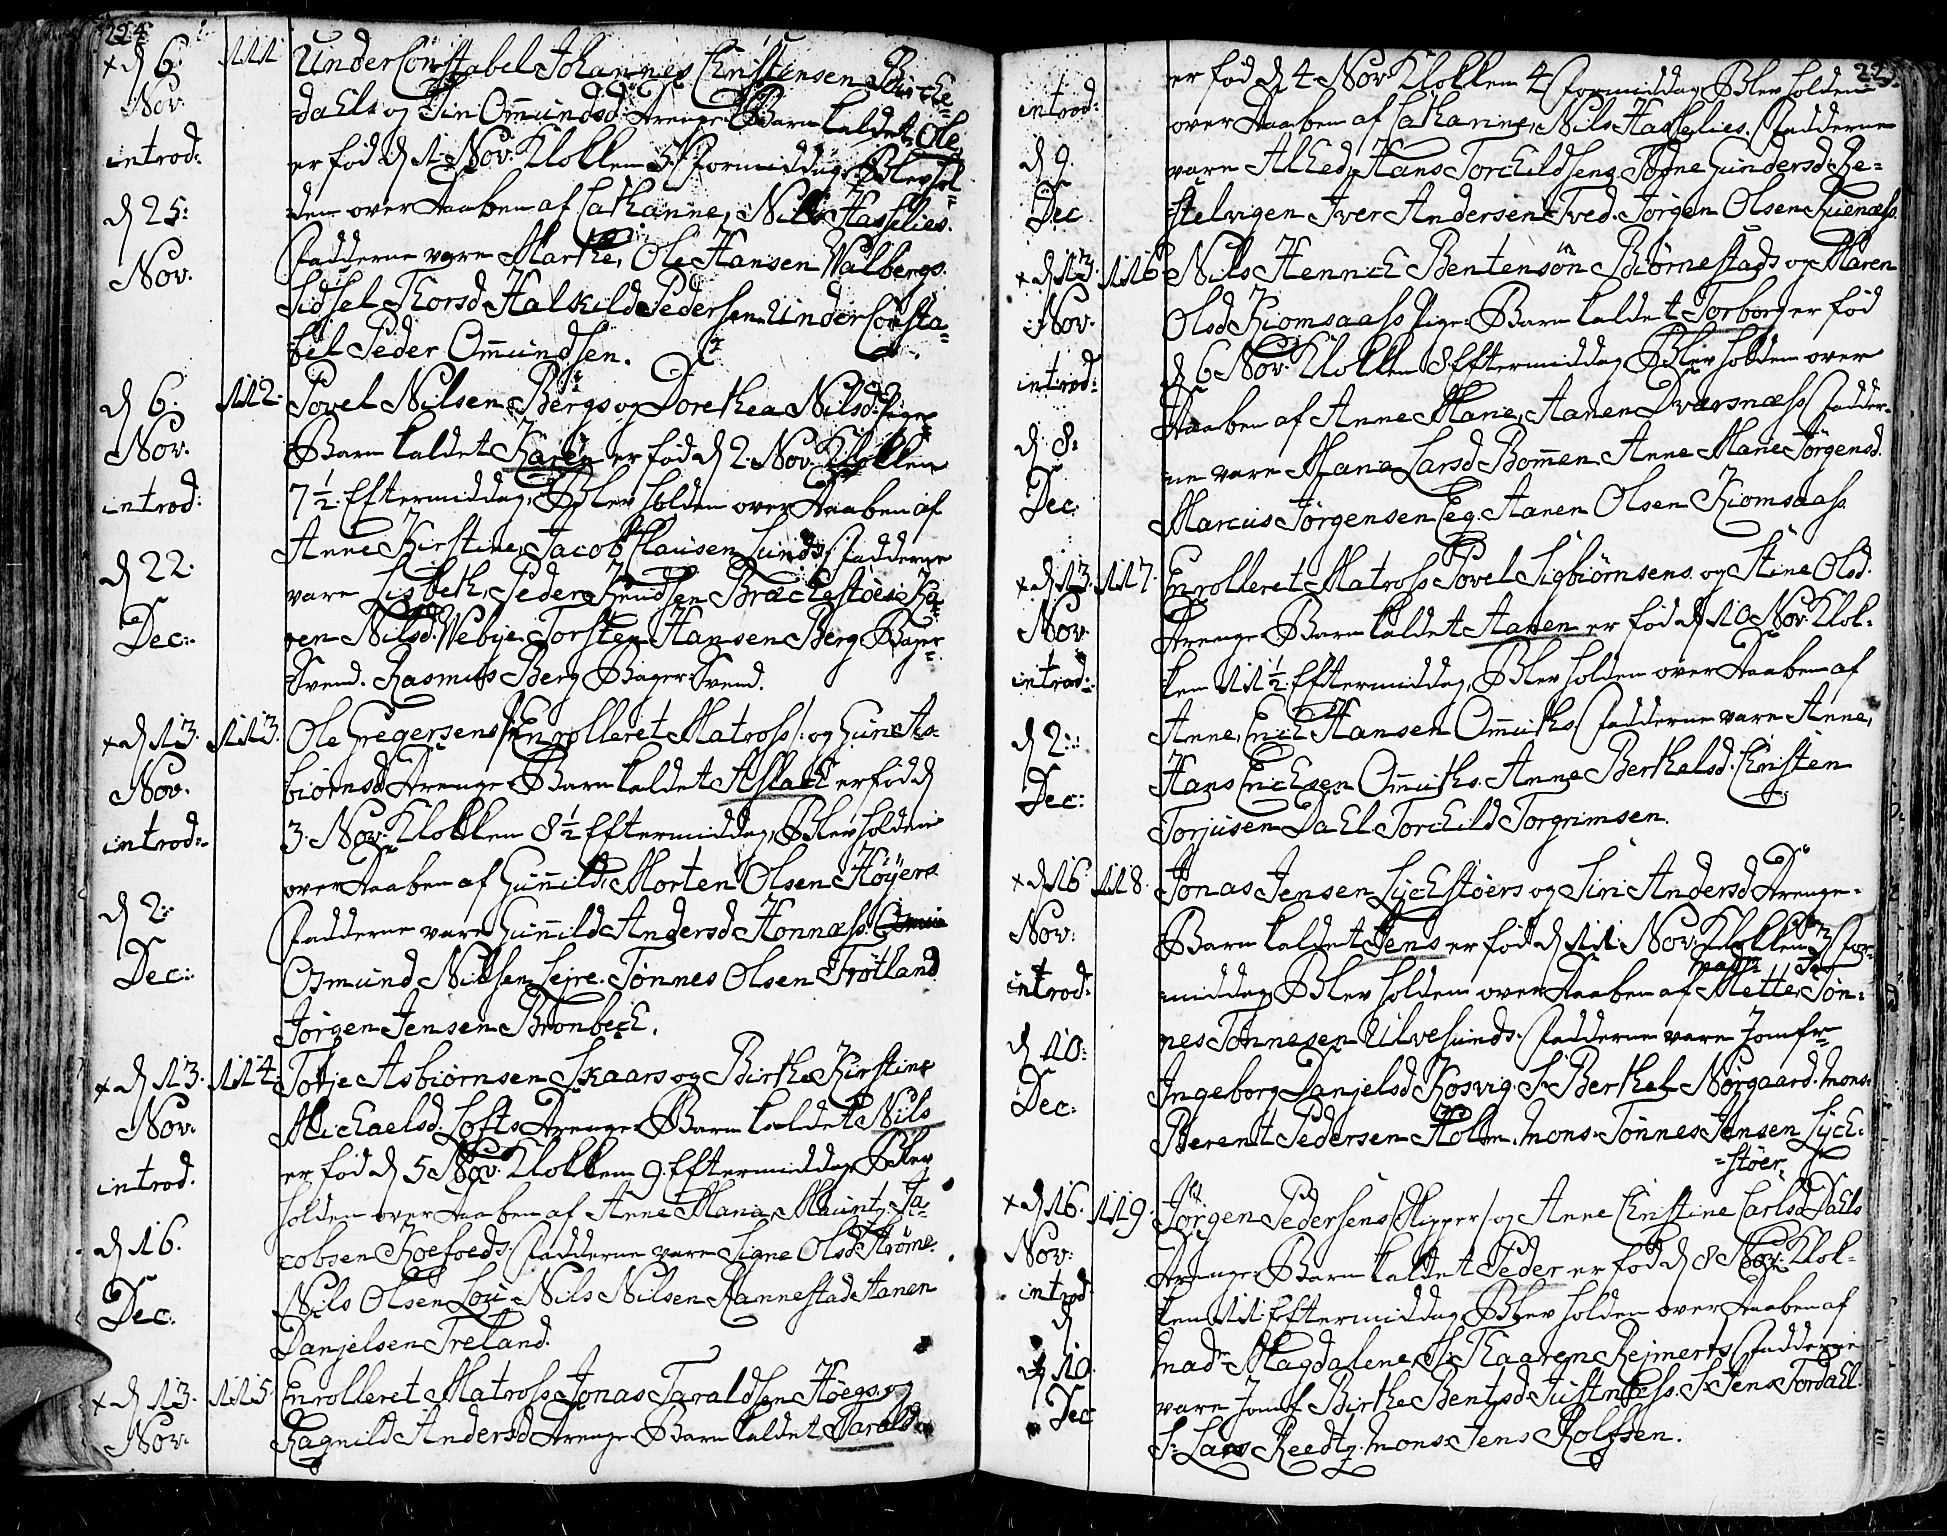 224.
× d 6. Nov. introd: d 25: Nov.
111.
UnderConstabel Johannes Christensen Birche=
dahls og Siri Omundsd. Drenge-Barn kaldet Ole
er fød d 1 Nov. Klokken 5 Formiddag, Blev hol=
den over Daaben af Catharine, Nils Hasselies.
Fadderne vare Marthe, Ole Hansen Walbergs.
Sidsel Thorsd. Halkild Pedersen. UnderConsta=
bel Peder Omundsen.
d 6. Nov. introd: d 22. Dec:
112.
Povel Nilsen Bergs og Dorethea Nilsd. Pige=
Barn kaldet Karen er fød d 2. Nov. Klokken
7½. Eftermiddag, Blev holden over Daaben af
Anne Kirstine, Jacob Clausen Lunds. Fadderne
vare Lisbeth, Peder Knudsen Brækkestøes. Ka=
ren Nilsd. Webye. Torsten Hansen Berg Bager=
Svend. Rasmus Berg Bager-Svend.
× d 13. Nov. introd: d 2: Dec:
113.
Ole Gregersens /: Enrolleret Matross :/ og Guri As=
biørnsd. Drenge-Barn kaldet Aslach er fød d
3. Nov. Klokken 8½ Eftermiddag, Blev holden
over Daaben af Gunnild, Morten Olsen Høyers.
Fadderne vare Gunnild Andersd. Honnæss.
Osmund Nilsen Lejre. Tønnes Olsen Trøtland
Jørgen Jensen Bronbech.
× d 13. Nov. introd. d 16. Dec.
114.
Totje Asbiørnsen Skaars og Birthe Kirstine
Michaelsd. Lofts Drenge-Barn kaldet Nils
er fød d 5 Nov. Klokken 9. Eftermiddag Blev
holden over Daaben af Anne Maria, Mauritz Ja=
cobsen Koefoeds. Fadderne vare Signe Olsd. Strøme.
Nils Olsen Lou. Nils Nilsen Rannestad. Aanen
Danjelsen Treland.
× d 13. Nov.
115.
Enrolleret Matross Jonas Taraldsen Høegs og
Ragnild Andersd. Drenge-Barn kaldet Tarald
225.
introd: d 9. Dec
er fød d 4 Nov. Klokken 4 Formiddag. Blev holden
over Daaben af Catharine, Nils Hasselies. Fadderne
vare Alhed, Hans Torchildsens. Tøgne Gundersd. Re=
stelvigen. Iver Andersen Tved. Jørgen Olsen Kuenæss.
× d 13. Nov. introd: d 8: Dec:
116.
Nils Henrich Bentensøn Biørnestads og Maren
Olsd. Kiomsaass Pige-Barn kaldet Torborg er fød
d 6 Nov. Klokken 8 Eftermiddag Blev holden over
Daaben af Anne Marie, Aanen Dværsnæss Fadder=
ne vare Maria Larsd. Bommen. Anne Marie Jørgensd.
Marcus Jørgensen Eeg. Aanen Olsen Kiomsaass.
× d 13. Nov. introd: d 2: Dec:
117.
Enrolleret Matross Povel Sigbiørnsens og Stine Olsd.
Drenge-Barn kaldet Aanen er fød d 10 Nov. Klok=
ken 11½ Eftermiddag, Blev holden over Daaben af
Anne, Erich Hansen Omuiths Fadderne vare Anne,
Hans Erichsen Omuiths. Anne Berthelsd. Christen
Torjusen Dahl. Torchild Torgrimsen.
× d 16 Nov: introd: d 10: Dec:
118.
Jonas Jensen Lychstøers og Siri Andersd. Drenge-
Barn kaldet Jens er fød d 11 Nov. Klokken 3 For=
middag Blev holden over Daaben af Mette, Tøn=
nes Tønnesen Ulvesunds. Fadderne vare Jomfr
Ingeborg Danjelsd. Kosvig. Sr Berthel Nørgaard. Mons:
Berent Pedersen Holm. Mons: Tønnes Jensen Lych=
=støer.
× d 16. Nov: introd d 10. Dec
119.
Jørgen Pedersens /Skipper/ og Anne Christine Carlsd. Dahls
Drenge-Barn kaldet Peder er fød d 8 Nov: Klok=
ken 11. Eftermiddag Blev holden over Daaben af
Madm Magdalene, Sr Kaaren Rejmerts Fadderne
vare Jomf Birthe Bentsd. Justnæss. Sr Jens Tordahl.
Sr Lars Reedtz. Mons Jens Rolfsen.